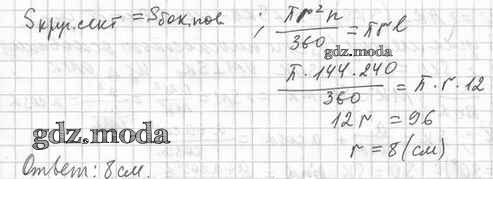 Sкруг.сект = Sбок.пов ; πr²n/360 = πrl
gdz.moda
π·144·240/360 = π·r·12
12r = 96
gdz.moda
r = 8(см)
Ответ: 8см.